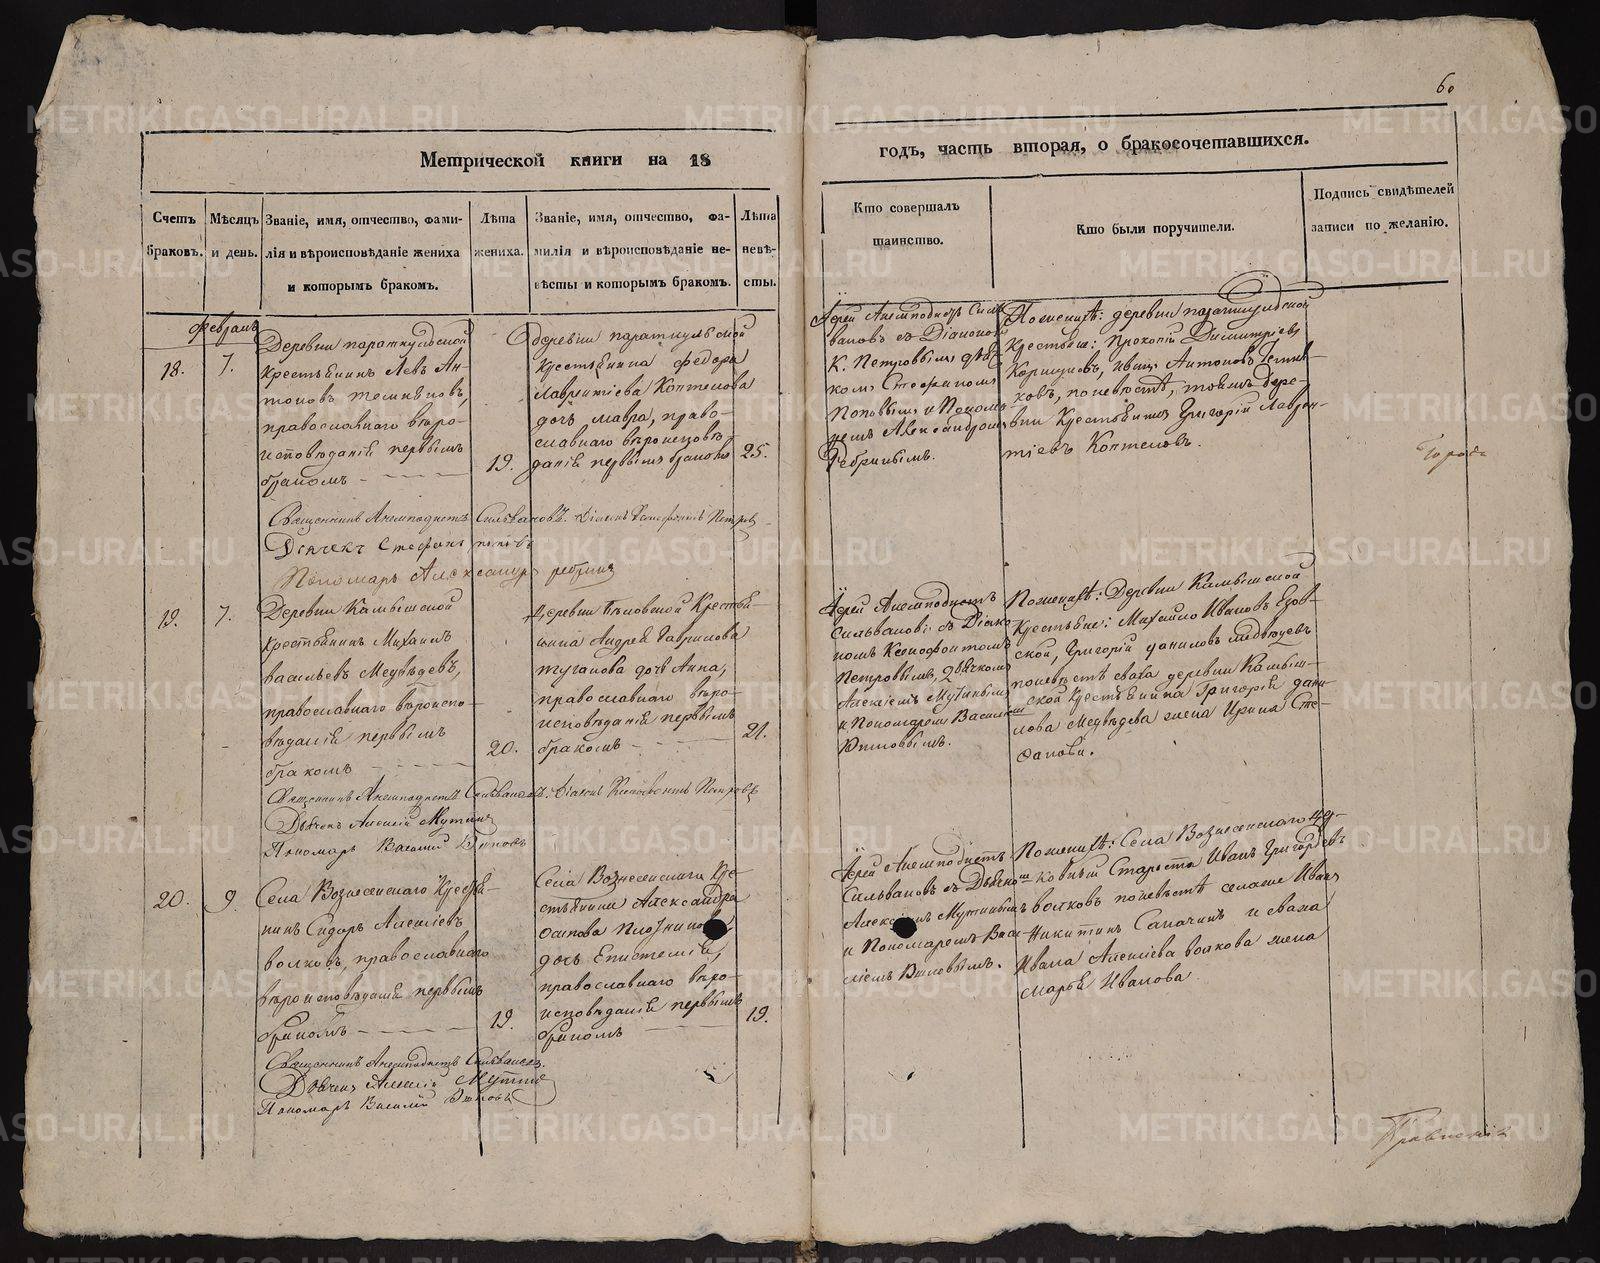 60
Метрической книги на 18
годъ, часть вторая, о бракосочетавшихся.
Счетъ браковъ.
Мѣсяцъ и день.
Званіе, имя, отчество, фами-
лія и вѣроисповѣданіе жениха
и которымъ бракомъ.
Лѣта жениха.
Званіе, имя, отчество, фа-
милія и вѣроисповѣданіе не-
вѣсты и которымъ бракомъ.
Лѣта невѣ-
сты.
Кто совершалъ
таинство.
Кто были поручители.
Подпись свидѣтелей
записи по желанію.
18.
7.
крестьянинъ Левъ Ан-
тоновъ
православнаго вѣро-
исповѣданія первымъ
бракомъ
19.
крестьянина Федора
Лаврентіева Коптелова
дочь Мавра, право-
славнаго вѣроисповѣ-
данія первымъ бракомъ
25.
Іерей Анемподистъ Силь-
вановъ съ Діакономъ
К. Петровымъ
Стефаномъ
Поповымъ и Понома-
ремъ Александромъ
Ребринымъ.
Крестьяне: Прокопій Димитріевъ
вни Крестьянинъ Григорій Лаврен-
тіевъ Коптеловъ.
Священникъ Анемподистъ Сильвановъ. Діаконъ Ксенофонтъ Петровъ
Дьячекъ Стефанъ Поповъ
Пономарь Александръ Ребринъ
19.
7.
Деревни Камышской
крестьянинъ Михаилъ
Васильевъ Медвѣдевъ,
православнаго вѣроиспо-
вѣданія первымъ
бракомъ
20.
Андрея Гаврилова
дочь Анна,
православнаго вѣро-
исповѣданія первымъ
бракомъ
21.
Іерей Анемподистъ
Сильвановъ съ Діако-
номъ Ксенофонтомъ
Петровымъ, дьячкомъ
Алексіемъ Мутинымъ
и Пономаремъ Василіемъ
Поженихѣ: Деревни Камышской
Крестьяне: Михайло Ивановъ
Григорій Даниловъ Медвѣдевъ
поневѣстѣ сваха деревни Камыш-
ской Крестьянина Григорія Дани-
лова Медвѣдева жена Ирина Сте-
фанова.
Священникъ Анемподистъ Сильвановъ. Діаконъ Ксенофонтъ Петровъ
Дьячекъ Алексій Мутинъ
Пономарь Василій
20.
9.
Села Вознесенскаго Крестья-
нинъ Сидоръ Алексіевъ
Волковъ, православнаго
вѣроисповѣданія первымъ
бракомъ
19.
Села Вознесенскаго Кре-
стьянина Александра
Осипова
дочь Епистемія,
православнаго вѣро-
исповѣданія первымъ
бракомъ
19.
Іерей Анемподистъ
Сильвановъ съ Дьячкомъ
Алексіемъ Мутинымъ
и Пономаремъ Васи-
ліемъ
Поженихѣ: Села Вознесенскаго Цер-
ковный Староста Иванъ Григорьевъ
Волковъ поневѣстѣ Иванъ
Никитинъ и сваха
Ивана Алексіева Волкова жена
Марья Иванова.
Священникъ Анемподистъ Сильвановъ.
Дьячекъ Алексій Мутинъ
Пономарь Василій
METRIKI.GASO-URAL.RU